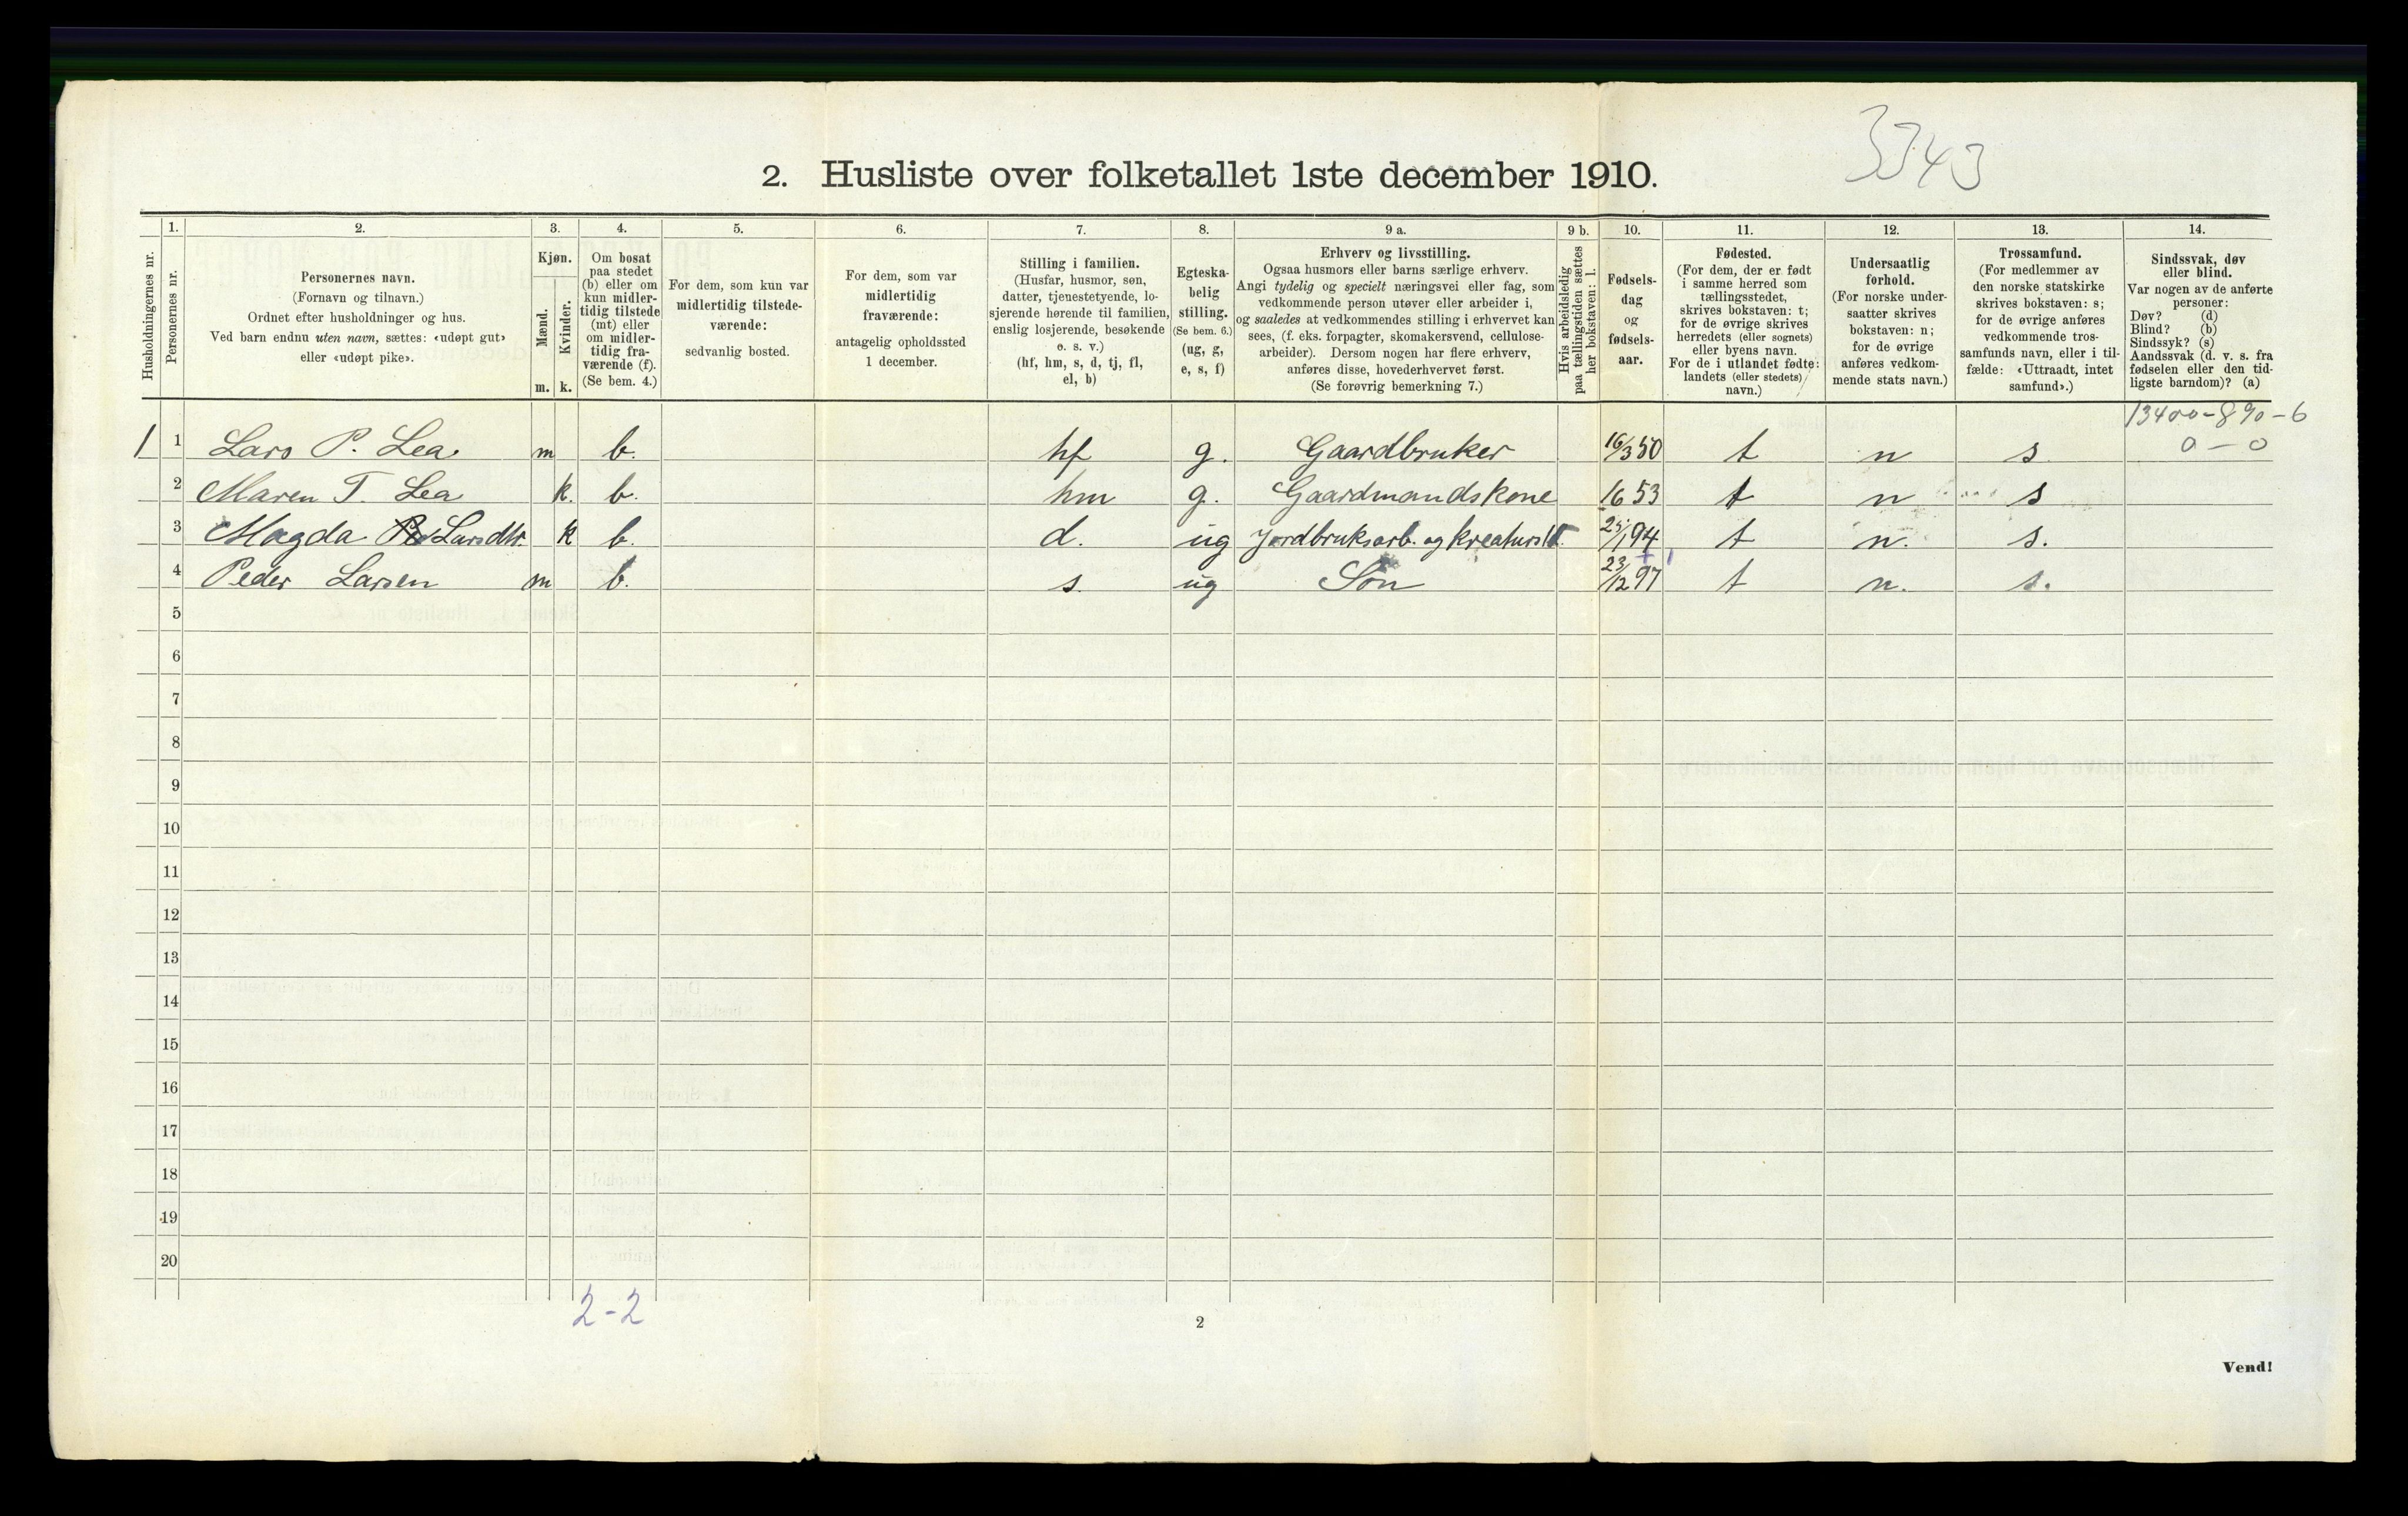 3343
2. Husliste over folketallet 1ste december 1910.
Husholdningernes nr.
1.
Personernes nr.
2.
Personernes navn.
(Fornavn og tilnavn.)
Ordnet efter husholdninger og hus.
Ved barn endnu uten navn, sættes: «udøpt gut»
eller «udøpt pike».
3.
Kjøn.
Mænd.
Kvinder.
m. k.
4.
Om bosat
paa stedet
(b) eller om
kun midler-
tidig tilstede
(mt) eller
om midler-
tidig fra-
værende (f).
(Se bem. 4.)
5.
For dem, som kun var
midlertidig tilstede-
værende:
sedvanlig bosted.
6.
For dem, som var
midlertidig
fraværende:
antagelig opholdssted
1 december.
7.
Stilling i familien.
(Husfar, husmor, søn,
datter, tjenestetyende, lo-
sjerende hørende til familien,
enslig losjerende, besøkende
o. s. v.)
(hf, hm, s, d, tj, fl,
el, b)
8.
Egteska-
belig
stilling.
(Se bem. 6.)
(ug, g,
e, s, f)
9 a.
Erhverv og livsstilling.
Ogsaa husmors eller barns særlige erhverv.
Angi tydelig og specielt næringsvei eller fag, som
vedkommende person utøver eller arbeider i,
og saaledes at vedkommendes stilling i erhvervet kan
sees, (f. eks. forpagter, skomakersvend, cellulose-
arbeider). Dersom nogen har flere erhverv,
anføres disse, hovederhvervet først.
(Se forøvrig bemerkning 7.)
9 b.
Hvis arbeidsledig
paa tællingstiden sættes
her bokstaven: l.
10.
Fødsels-
dag
og
fødsels-
aar.
11.
Fødested.
(For dem, der er født
i samme herred som
tællingsstedet,
skrives bokstaven: t;
for de øvrige skrives
herredets (eller sognets)
eller byens navn.
For de i utlandet fødte:
landets (eller stedets)
navn.)
12.
Undersaatlig
forhold.
(For norske under-
saatter skrives
bokstaven: n;
for de øvrige
anføres vedkom-
mende stats navn.)
13.
Trossamfund.
(For medlemmer av
den norske statskirke
skrives bokstaven: s;
for de øvrige anføres
vedkommende tros-
samfunds navn, eller i til-
fælde: «Uttraadt, intet
samfund».)
14.
Sindssvak, døv
eller blind.
Var nogen av de anførte
personer:
Døv? (d)
Blind? (b)
Sindssyk? (s)
Aandssvak (d. v. s. fra
fødselen eller den tid-
ligste barndom)? (a)
13400-890-6
1 1 Lars P. Lea m b. hf g. Gaardbruker 16/3 50 t n s 0-0
2 Maren T. Lea k. b. hm g. Gaardmandskone 16 53 t n s
3 Magda Larsdtr. k b. d. ug Jordbruksarb. og kreaturst. 25/1 94 t n. s.
4 Peder Larsen m b. s. ug Søn 23/12 97 t n. s.
5
6
7
8
9
10
11
12
13
14
15
16
17
18
19
20
2-2
2
Vend!